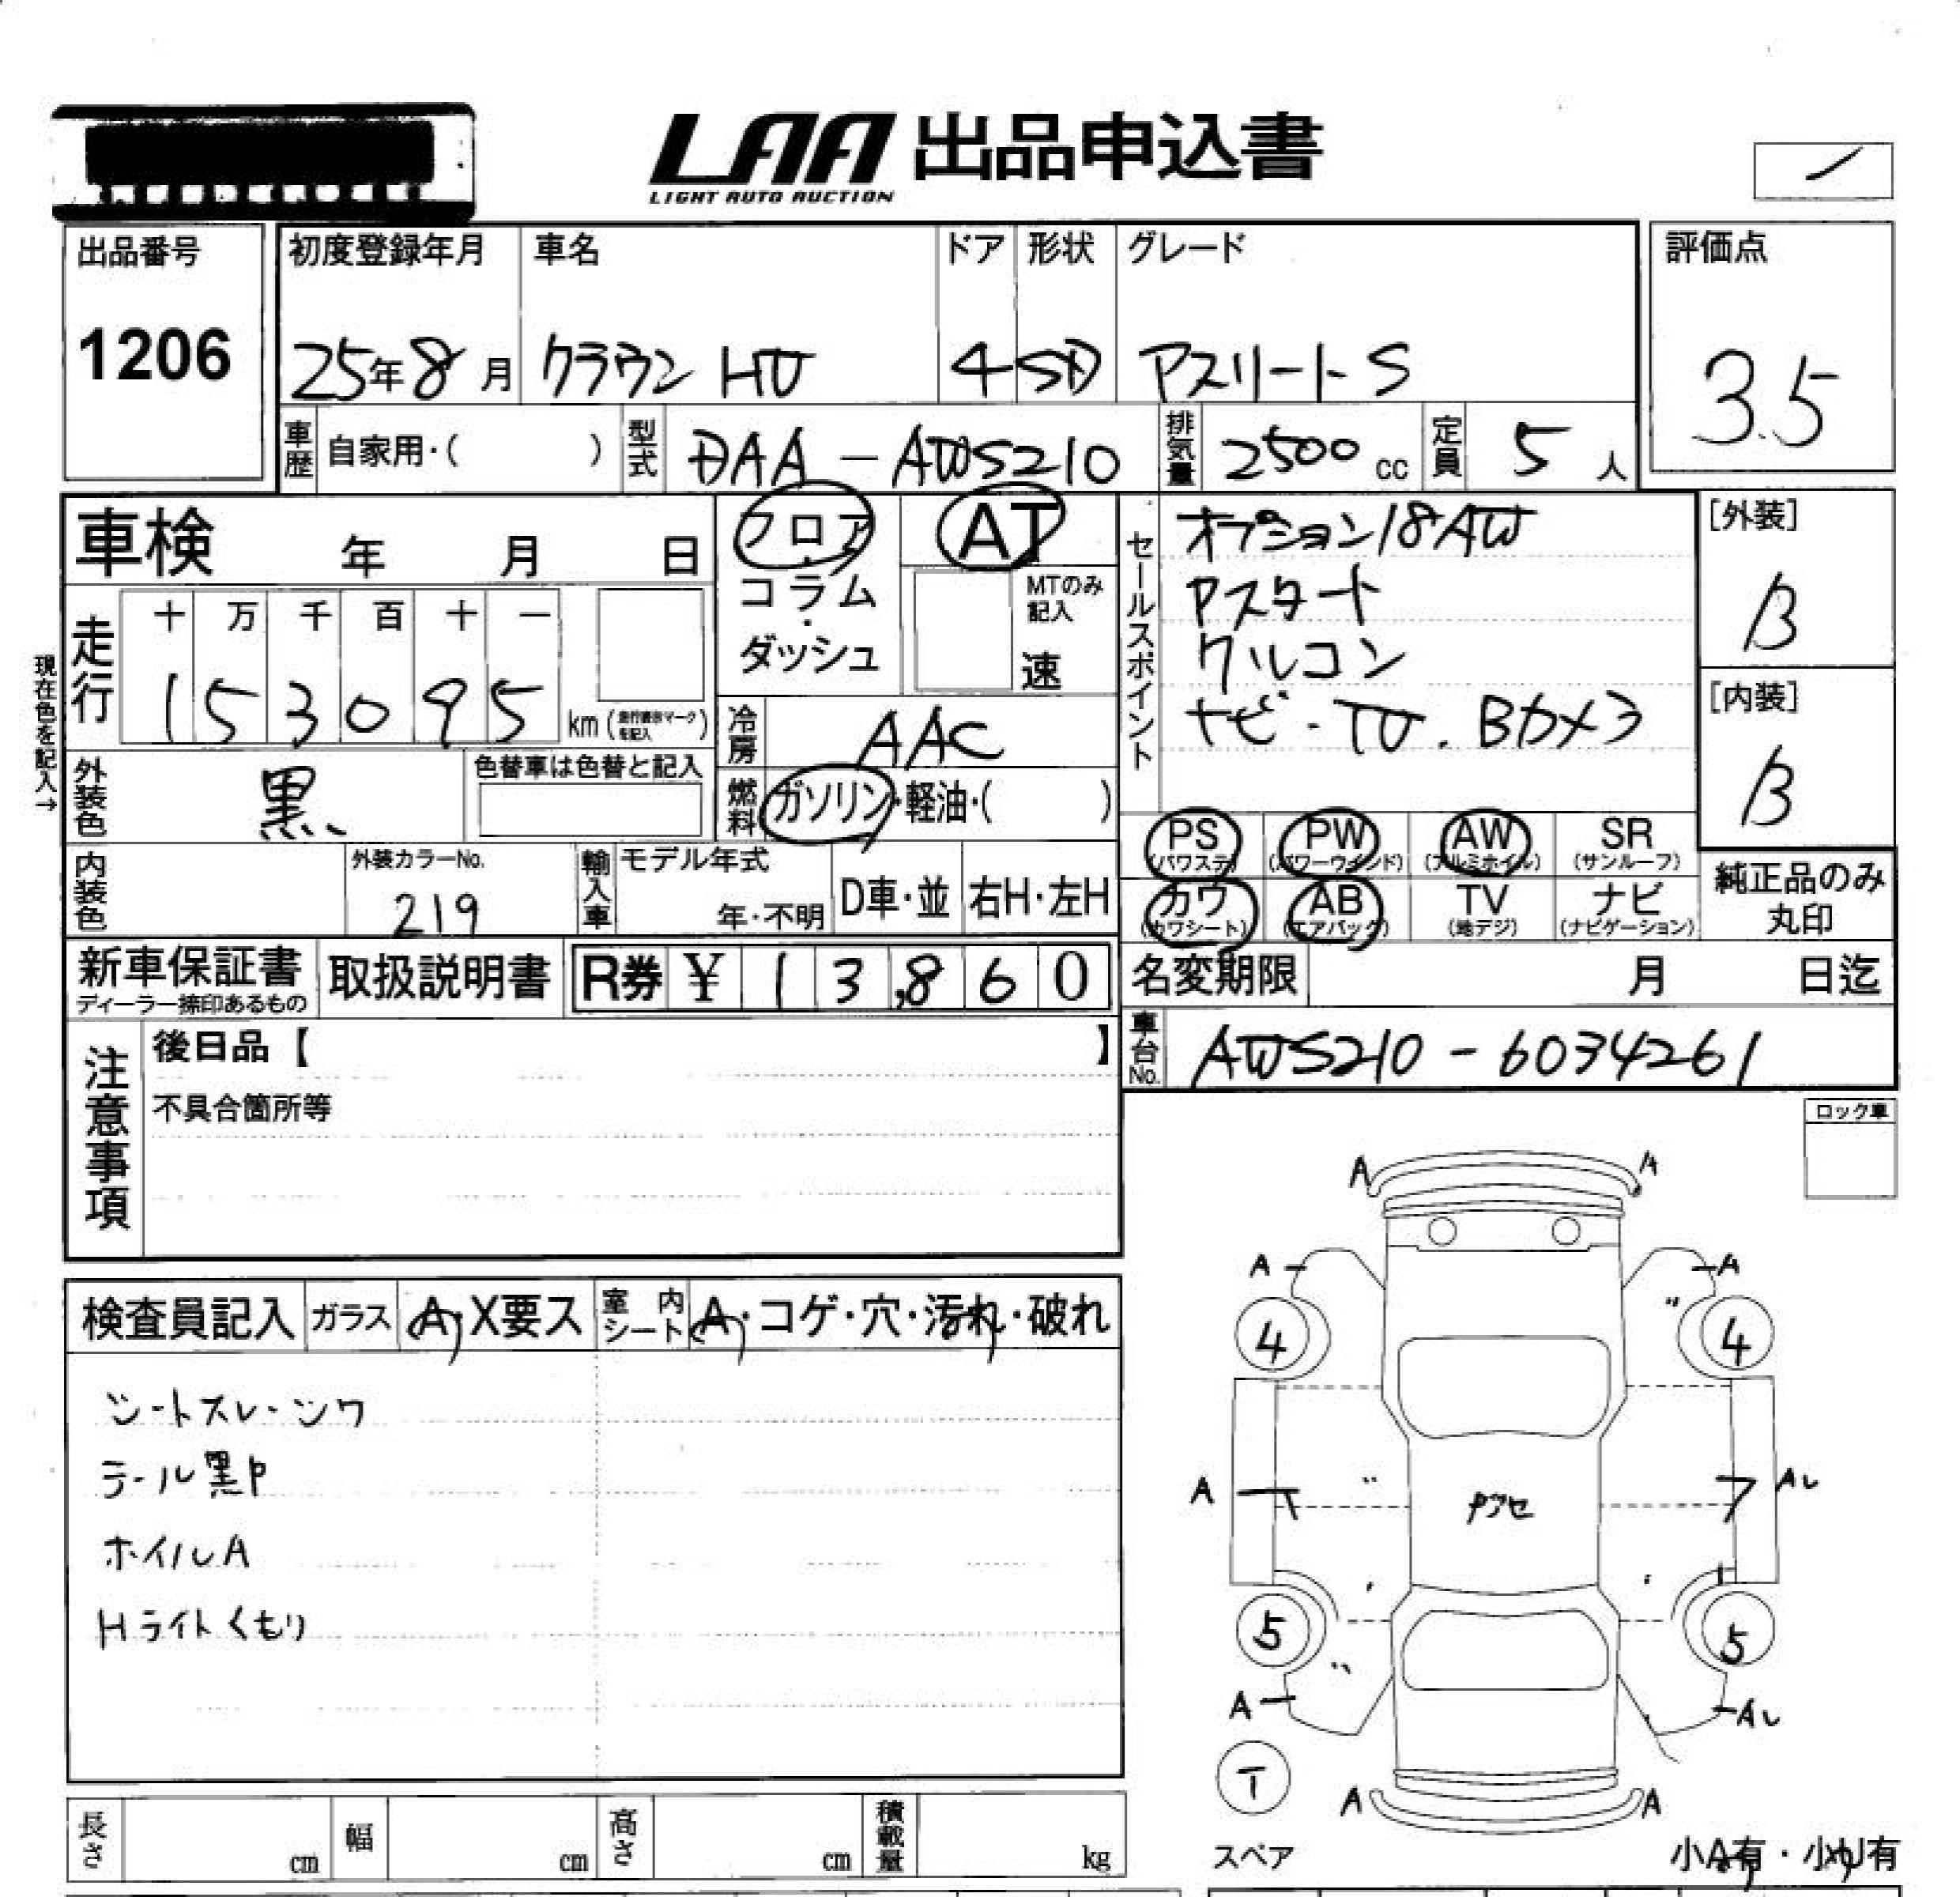 LAA 出品申込書
LIGHT AUTO AUCTION
出品番号
1206
初度登録年月
25年8月
車名
クラウン HV
ドア
4
形状
SD
グレード
アスリートS
評価点
3.5
車歴 自家用・( )
型式 DAA-AWS210
排気量 2500 cc
定員 5 人
車検 年 月 日
フロア
コラム
・
ダッシュ
AT
MTのみ
記入
速
走行
十 万 千 百 十 一
1 5 3 0 9 5 km (走行表示マークを記入)
現在色を記入→
冷房 AAC
外装色 黒
色替車は色替と記入
燃料 ガソリン・軽油・( )
内装色
外装カラーNo.
219
輸入車
モデル年式
年・不明
D車・並
右H・左H
セールスポイント
オプション18AW
Pスタート
クルコン
ナビ・TV.Bカメラ
[外装]
B
[内装]
B
PS (パワステ)
PW (パワーウインド)
AW (アルミホイル)
SR (サンルーフ)
カワ (カワシート)
AB (エアバック)
TV (地デジ)
ナビ (ナビゲーション)
純正品のみ
丸印
新車保証書
ディーラー捺印あるもの
取扱説明書
R券 ¥ 1 3,8 6 0
名変期限 月 日迄
車台No. AWS210-6034261
注意事項
後日品【 】
不具合箇所等
ロック車
検査員記入 ガラス A・X要ス 室内シート A・コゲ・穴・汚れ・破れ
シートスレ・シワ
テール黒P
ホイルA
Hライトくもり
A A
A A
〃
4 4
A 〃 Pアセ AL
5 5
〃
A AL
T
A A
スペア
小A有・小U有
長さ cm
幅 cm
高さ cm
積載量 kg